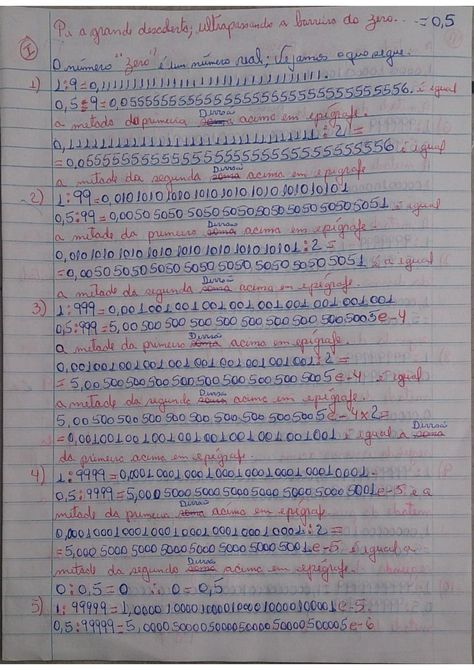 Pi a grande descoberta; ultrapassando a barreira do zero... = 0,5
I
O número "zero" é um número real; Vejamos o que segue.
1) 1:9=0,1111111111111111111111111111111.
0,5÷9=0,05555555555555555555555555555556. é igual
a metade da primeira Divisão acima em epígrafe.
0,11111111111111111111111111111111:2/=
=0,05555555555555555555555555555556 é igual
a metade da segunda Divisão acima em epígrafe
2) 1:99=0,01010101010101010101010101010101
0,5:99=0,00505050505050505050505050505051 é igual
a metade da primeira Divisão acima em epígrafe.
0,01010101010101010101010101010101:2=
=0,00505050505050505050505050505051 é a igual
a metade da segunda Divisão acima em epígrafe.
3) 1:999=0,001001001001001001001001001001001
0,5:999=5,005005005005005005005005005005e-4
a metade da primeira Divisão acima em epígrafe.
0,001001001001001001001001001001001:2=
=5,005005005005005005005005005005e-4 é igual
a metade da segunda Divisão acima em epígrafe.
5,005005005005005005005005005005e-4x2=
=0,001001001001001001001001001001001 é igual à Divisão
da primeira acima em epígrafe.
4) 1:9999=0,00010001000100010001000100010001.
0,5:9999=5,0005000500050005000500050005001e-5 é a
metade da primeira Divisão acima em epígrafe
0,00010001000100010001000100010001:2=
=5,0005000500050005000500050005001e-5 é igual a
metade da segunda Divisão acima em epígrafe.
0:0,5=0 ∴ 0=0,5
5) 1:99999=1,000010000100001000010000100001e-5
0,5:99999=5,00005000050000500005000050005e-6